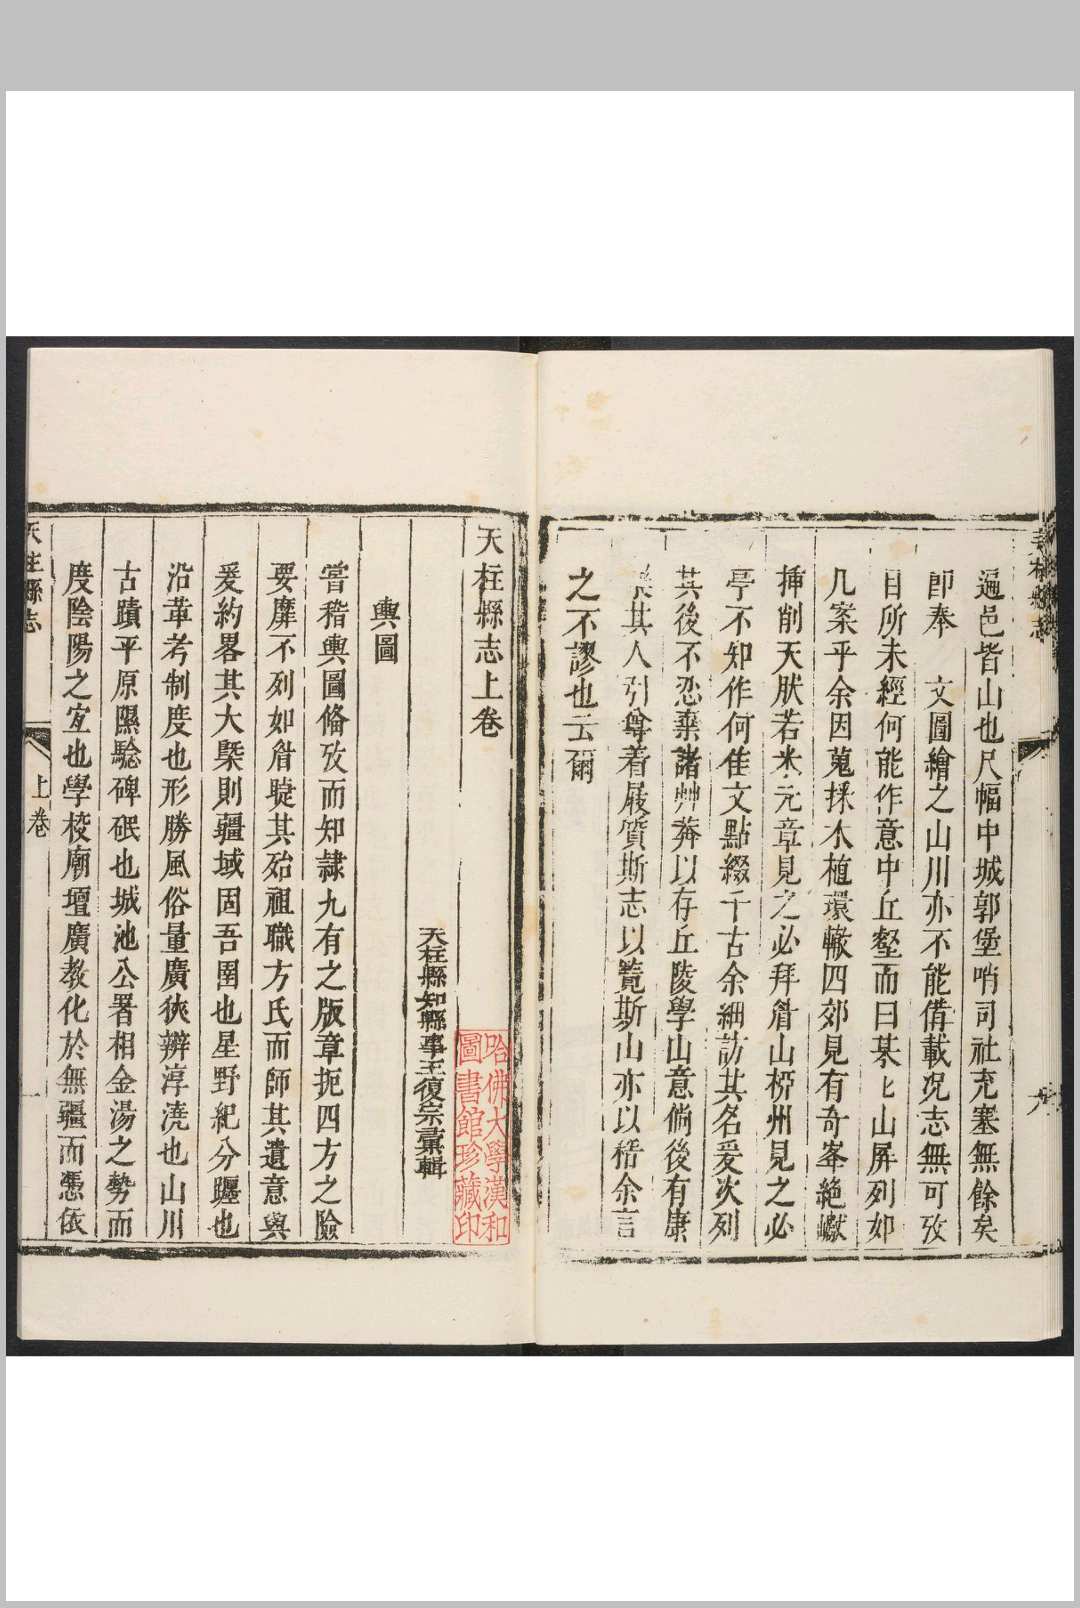 遍邑皆山也尺幅中城郭堡哨司社充塞無餘矣
卽奉 文圖繪之山川亦不能備載况志無可攷
目所未經何能作意中丘壑而曰某ヒ山屏列如
几案乎余因蒐採木植環轍四郊見有奇峯絶巘
揷削天肰若米元章見之必拜眉山栁州見之必
亭不知作何佳文點綴千古余細訪其名爰次列
其後不忍棄諸艸莽以存丘陵學山意倘後有康
其人引尊着屐質斯志以覽斯山亦以稽余言
之不謬也云爾
天柱縣志上卷
天柱縣知縣事王復宗彙輯
輿圖
嘗稽輿圖俻攷而知隷九有之版章扼四方之險
要靡不列如眉㫰其殆祖職方氏而師其遺意與
爰約畧其大槩則疆域固吾圉也星野紀分躔也
沿革考制度也形勝風俗量廣狹辨淳澆也山川
古蹟平原隰騐碑碣也城池公署相金湯之勢而
度陰陽之宜也學校廟壇廣教化於無疆而憑依
天柱縣志
上卷
一
哈佛大學漢和
圖書館珍藏印